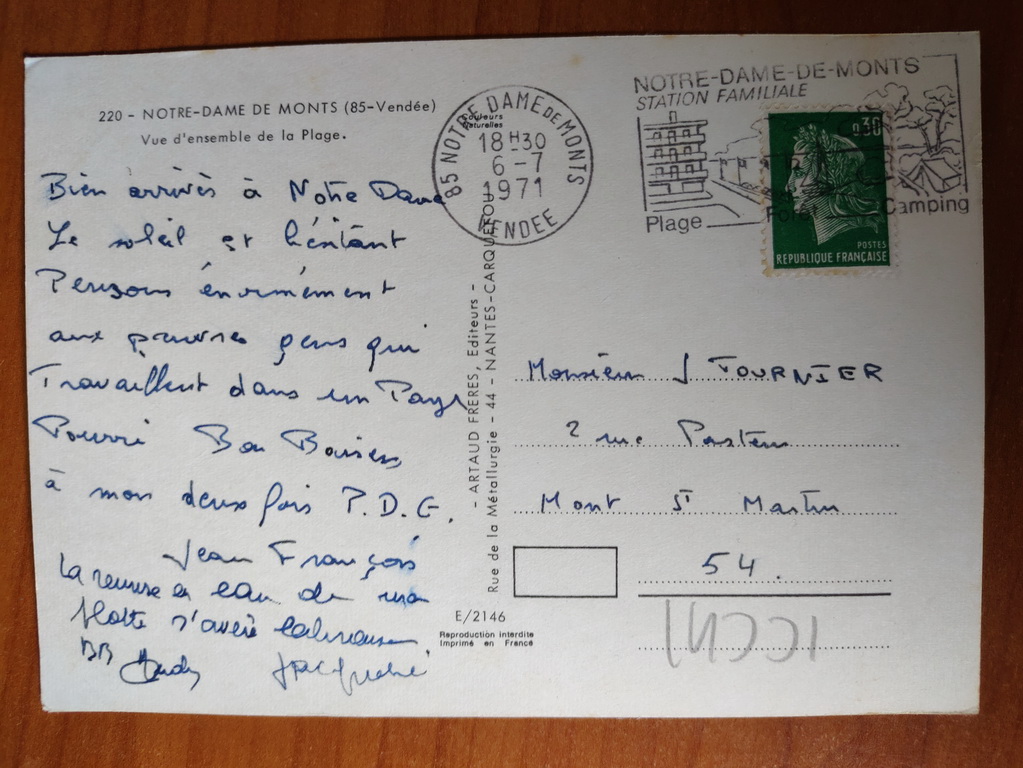 220 - NOTRE-DAME DE MONTS (85-Vendée)
Vue d'ensemble de la Plage.
Couleurs
Naturelles
85 NOTRE DAME DE MONTS
18 H30
6-7
1971
VENDEE
NOTRE-DAME-DE-MONTS
STATION FAMILIALE
Plage
Camping
0,30
POSTES
REPUBLIQUE FRANÇAISE
Bien arrivés à Notre Dame
Le soleil et
Pensons énormément
aux pauvres gens qui
Travaillent dans un Pays
Pourri Bon Baisers
à mon deux fois P.D.G.
Jean François
La remise en eau de ma
flotte s'avère
BB
Jacqueline
- ARTAUD FRERES, Editeurs -
Rue de la Métallurgie - 44 - NANTES-CARQUEFOU
E/2146
Reproduction interdite
Imprimé en France
Monsieur J FOURNIER
2 rue Pasteur
Mont St Martin
54.